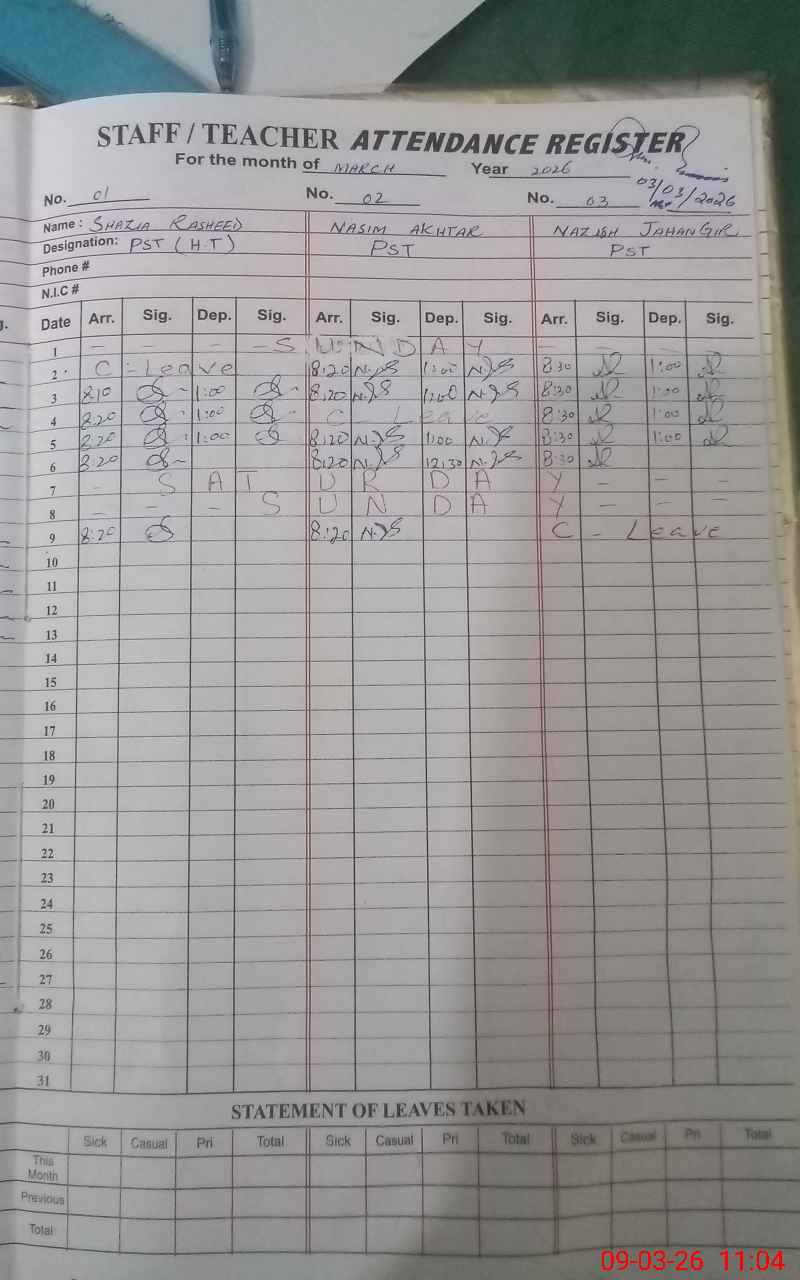 STAFF / TEACHER ATTENDANCE REGISTER
For the month of MARCH Year 2026
03/03/2026
No. 01 No. 02 No. 03
Name : SHAZIA RASHEED NASIM AKHTAR NAZISH JAHANGIR
Designation: PST (H.T) PST PST
Phone #
N.I.C #
Date Arr. Sig. Dep. Sig. Arr. Sig. Dep. Sig. Arr. Sig. Dep. Sig.
1 — — — — S U N D A Y — — —
2 C - Leave 8:20 1:00 8:30 1:00
3 8:10 1:00 8:20 1:00 8:30 1:00
4 8:20 1:00 C Leave 8:30 1:00
5 8:20 1:00 8:20 1:00 8:30 1:00
6 8:20 8:20 12:30 8:30
7 — S A T U R D A Y — — —
8 — — — S U N D A Y — — —
9 8:20 8:20 C - Leave
10
11
12
13
14
15
16
17
18
19
20
21
22
23
24
25
26
27
28
29
30
31
STATEMENT OF LEAVES TAKEN
Sick Casual Pri Total Sick Casual Pri Total Sick Casual Pri Total
This Month
Previous
Total
09-03-26 11:04